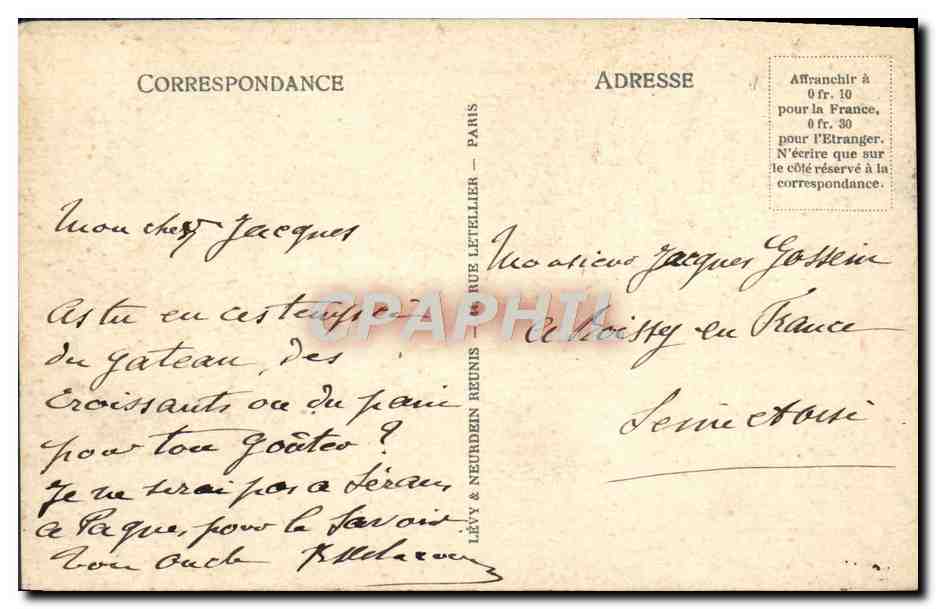 CORRESPONDANCE
Mon cher Jacques
As tu en ces temps ci
du gateau, des
croissants ou du pain
pour ton goûter ?
Je ne serai pas a Sérans
a Paque, pour le Savoir
ton oncle
LÉVY & NEURDEIN REUNIS — RUE LETELLIER — PARIS
ADRESSE
Affranchir à
0 fr. 10
pour la France,
0 fr. 30
pour l'Etranger.
N'écrire que sur
le côté réservé à la
correspondance.
Monsieur Jacques Gossein
a Boissy en France
Seine et Oise
CPAPHIL